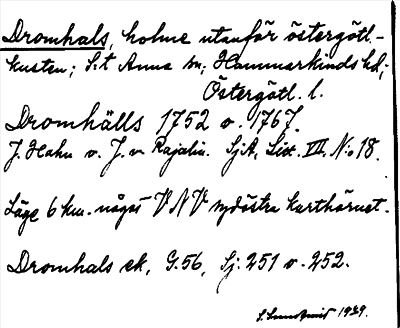 Dromhals, holme utanför östergötl.-
kusten; S:t Anna sn; Hammarkinds hd;
Östergötl. l.
Dromhälls 1752 o. 1767.
J. Hahn o. J. v. Rajalin. SjA, Litt. VII, No 18.
Läge 6 km. något VNV nydöstra karthörnet.
Dromhals ek, G.56, Sj: 251 o. 252.
1929.